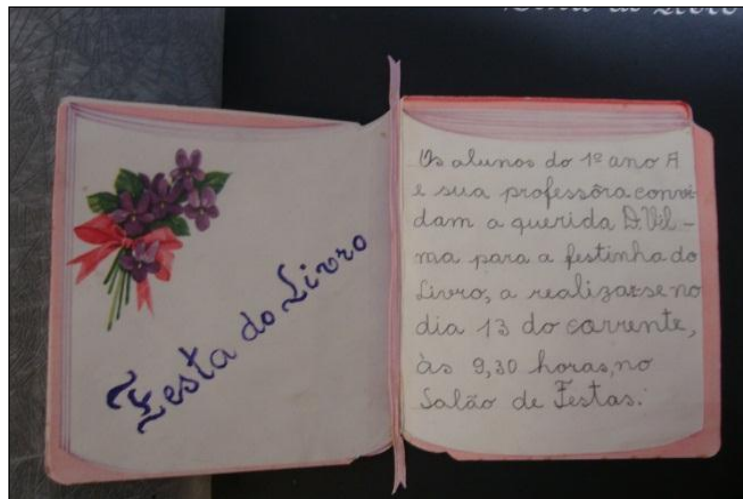 Festa do Livro
Os alunos do 1º ano A
e sua professôra convi-
dam a querida D. Vil-
ma para a festinha do
Livro, a realizar-se no
dia 13 do corrente,
às 9,30 horas, no
Salão de Festas.